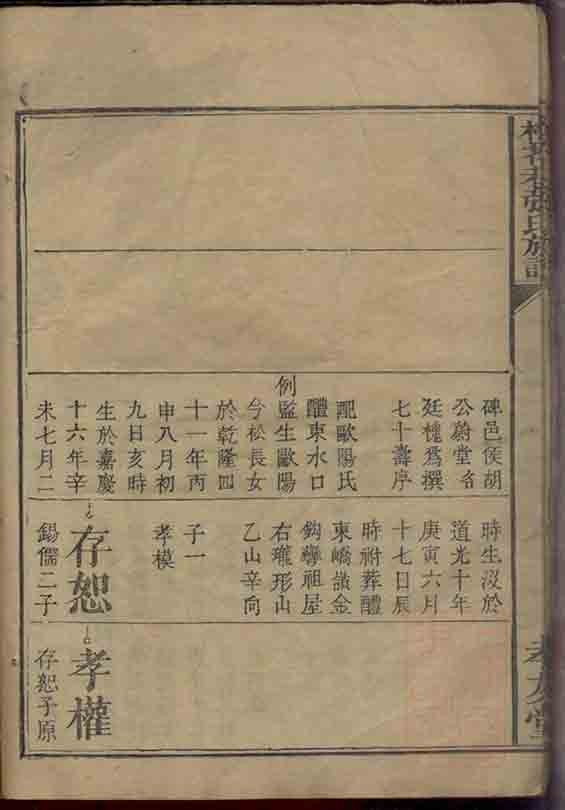 氏族譜
孝友堂
碑邑侯胡
公蔚堂名
廷槐爲撰
七十壽序
配歐陽氏
醴東水口
例監生歐陽
今松長女
於乾隆四
十一年丙
申八月初
九日亥時
生於嘉慶
十六年辛
未七月二
時生沒於
道光十年
庚寅六月
十七日辰
時祔葬醴
東嶠嶺金
鈎彎祖屋
右瓏形山
乙山辛向
子一
孝模
存恕
錫儒二子
孝權
存恕子原